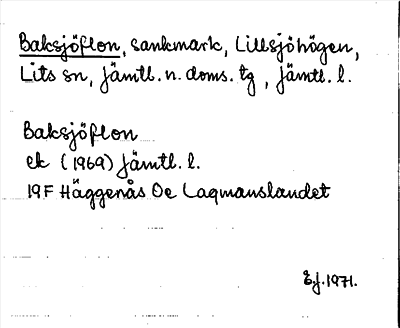 Baksjöflon, sankmark, Lillsjöhögen,
Lits sn, Jämtl. n. doms. tg, Jämtl. l.
Baksjöflon
ek (1969) Jämtl. l.
19F Häggenås Oe Lagmanslandet
Ej. 1971.